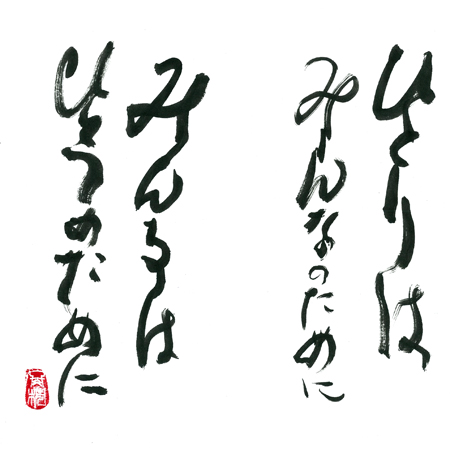 ひとりは
みんなのために
みんなは
ひとつのために